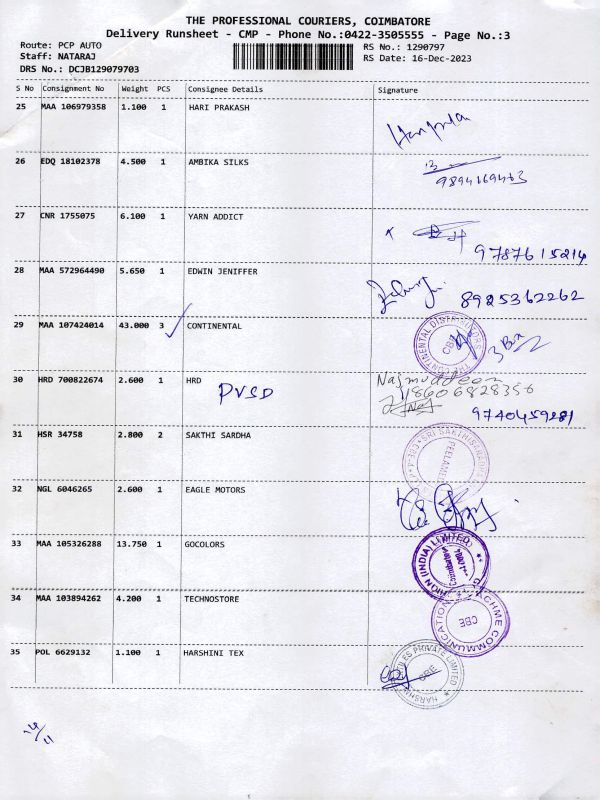 THE PROFESSIONAL COURIERS, COIMBATORE
Delivery Runsheet - CMP - Phone No.:0422-3505555 - Page No.:3
Route: PCP AUTO RS No.: 1290797
Staff: NATARAJ RS Date: 16-Dec-2023
DRS No.: DCJB129079703
S No Consignment No Weight PCS Consignee Details Signature
25 MAA 106979358 1.100 1 HARI PRAKASH
26 EDQ 18102378 4.500 1 AMBIKA SILKS
9894169463
27 CNR 1755075 6.100 1 YARN ADDICT
9787615214
28 MAA 572964490 5.650 1 EDWIN JENIFFER
8925362262
29 MAA 107424014 43.000 3 CONTINENTAL
THE CONTINENTAL DISTRIBUTORS
CBE
3 Box
30 HRD 700822674 2.600 1 HRD
PVSD
Najmuddeen
9740459281
31 HSR 34758 2.800 2 SAKTHI SARDHA
32 NGL 6046265 2.600 1 EAGLE MOTORS
33 MAA 105326288 13.750 1 GOCOLORS
(INDIA) LIMITED
34 MAA 103894262 4.200 1 TECHNOSTORE
CBE
35 POL 6629132 1.100 1 HARSHINI TEX
PRIVATE LIMITED
CBE